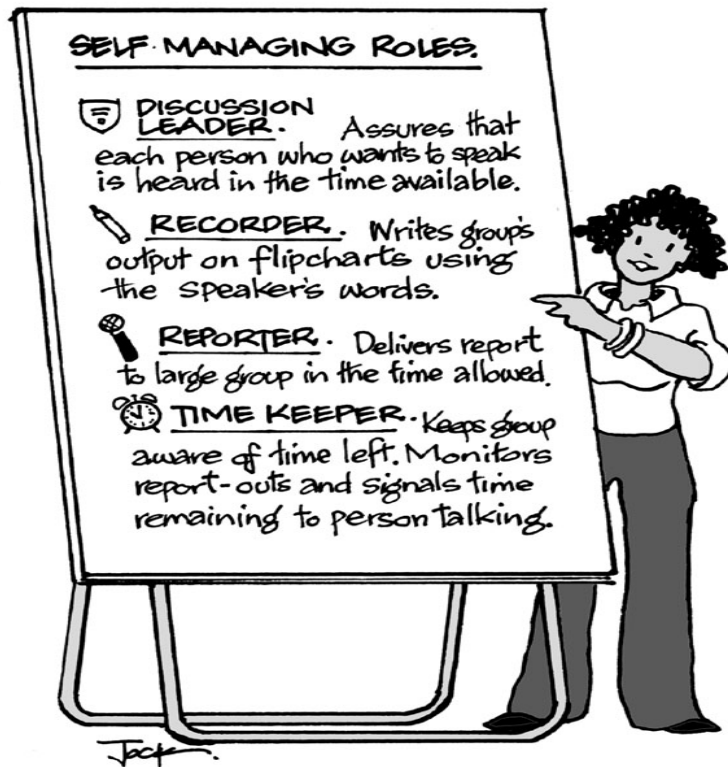 SELF-MANAGING ROLES.
DISCUSSION
LEADER. Assures that
each person who wants to speak
is heard in the time available.
RECORDER. Writes group's
output on flipcharts using
the speaker's words.
REPORTER. Delivers report
to large group in the time allowed.
TIME KEEPER. Keeps group
aware of time left. Monitors
report-outs and signals time
remaining to person talking.
Jock